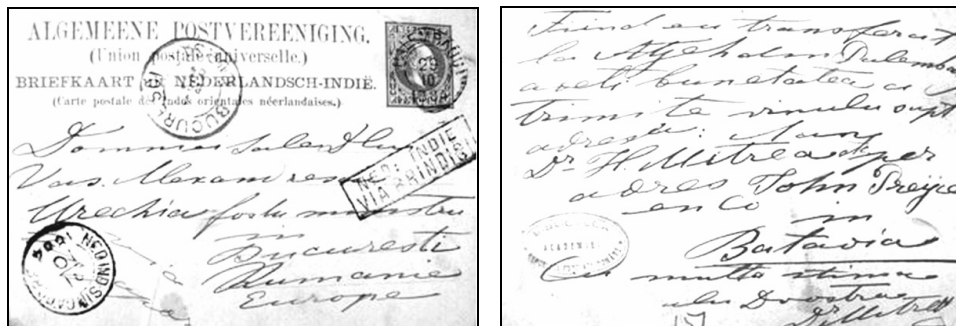 ALGEMEENE POSTVEREENIGING.
(Union postale universelle.)
BRIEFKAART UIT NEDERLANDSCH-INDIË.
(Carte postale des Indes orientales néerlandaises.)
BUCURESCI
29
10
NED. INDIE
VIA BRINDISI
Vas. Alexandrescu
Urechia fostu ministru
in
Bucuresti
Rumanie
Europe
NED IND
Fiind eu transferat
la Atjeh din Palemba
aveti bunetatea a
trimite vinulu supt
adresa:
Dr. H. Mitrea per
adres John Preyie
en Co in
Batavia
ACADEMIEI
Cu multa stima
alu Dvostra
Dr Mitrea